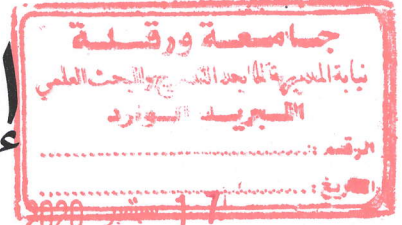 جامعة ورقلة
نيابة المديرية لما بعد التدرج والبحث العلمي
البريد الوارد
الرقم :
التاريخ :
17 سبتمبر 2020